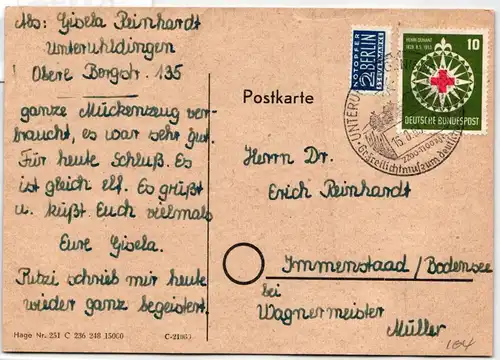 Abs: Gisela Reinhardt
Unteruhldingen
Obere Bergstr. 135
ganze Mückenzeug ver-
braucht, es war sehr gut.
Für heute Schluß. Es
ist gleich elf. Es grüßt
u. küßt Euch vielmals
Eure Gisela.
Putzi schrieb mir heute
wieder ganz begeistert.
Hago Nr. 251 C 236 248 15000
Postkarte
NOTOPFER
2 BERLIN
STEUERMARKE
HENRI DUNANT
1828 8.5. 1953
10
DEUTSCHE BUNDESPOST
Herrn Dr.
Erich Reinhardt
Immenstaad/Bodensee
bei
Wagnermeister
Müller
184